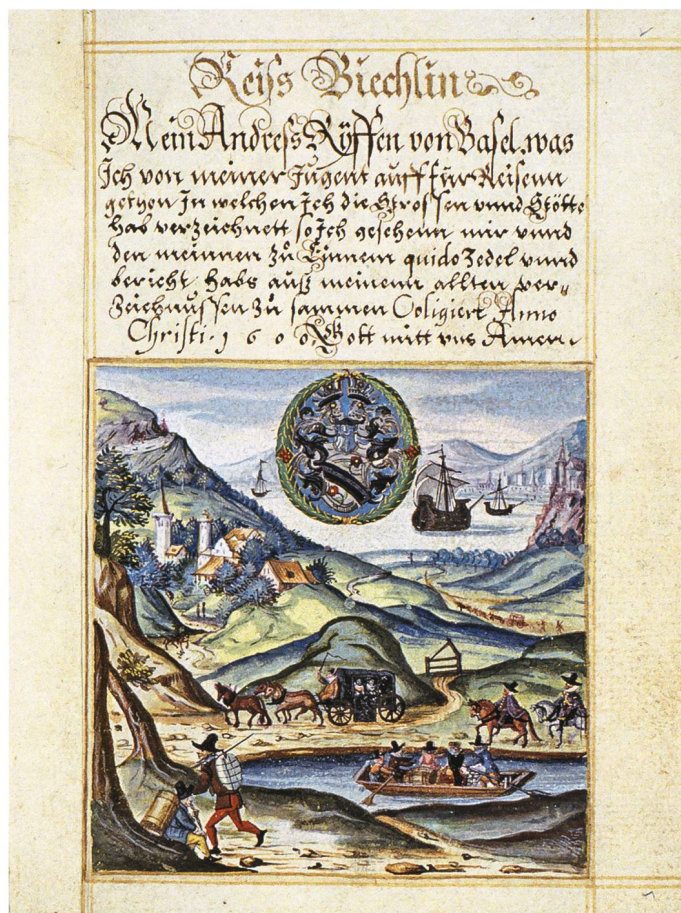 Reiss Biechlin
Mein Andress Ryffen von Basel. was
Ich von meiner Jugent auff für Reisenn
gethon In welchen Ich die Strossen vnnd Stötte
hab verzeichnett so Ich gesehenn mir vnnd
den meinnen zů Einnem quido Zedel vnnd
bericht, habs auß meinenn allten ver„
Zeichnussen zů sammen Coligiert Anno
Christi. 1600. Gott mitt vns Amen.